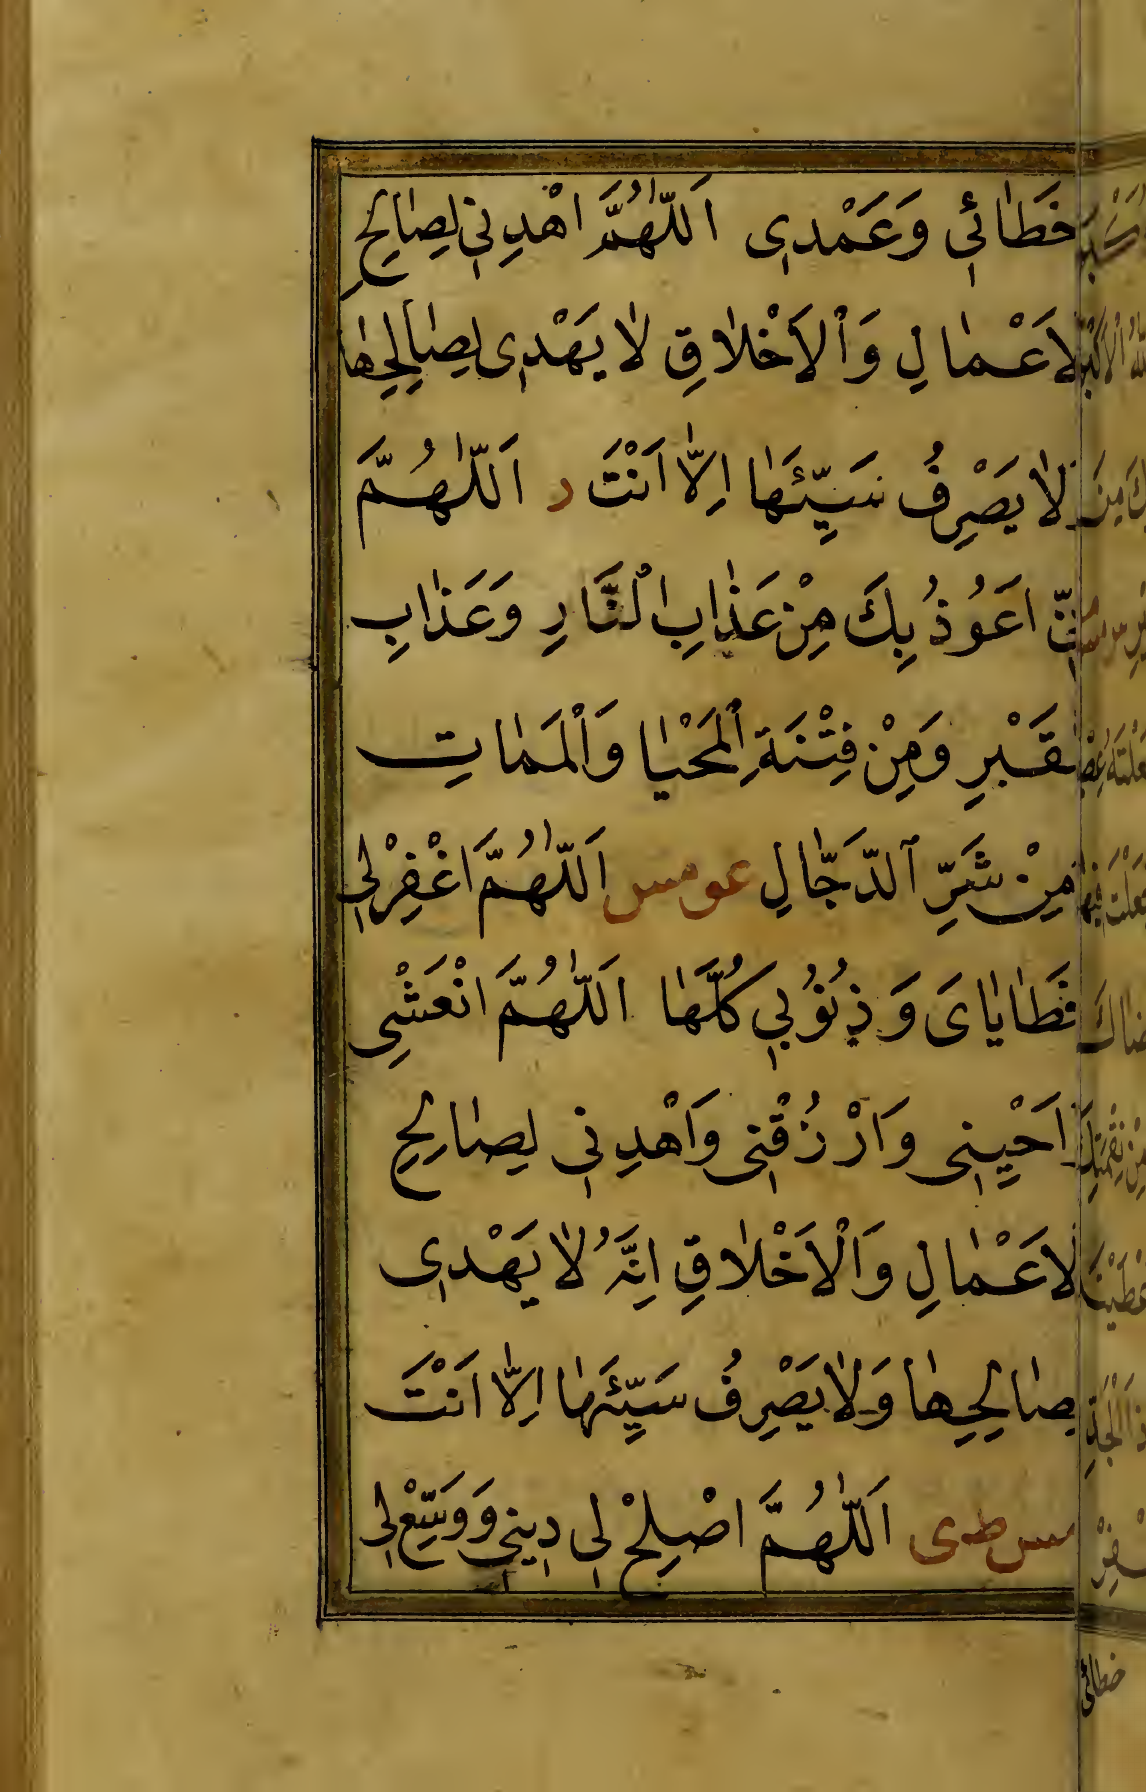 خَطَائِي وَعَمْدِي اَللّٰهُمَّ اهْدِنِي لِصَالِحِ
لاَعْمَالِ وَالْاَخْلَاقِ لَا يَهْدِي لِصَالِحِهَا
لَا يَصْرِفُ سَيِّئَهَا اِلَّا اَنْتَ ر اَللّٰهُمَّ
اَعُوذُ بِكَ مِنْ عَذَابِ النَّارِ وَعَذَابِ
لقَبْرِ وَمِنْ فِتْنَةِ الْمَحْيَا وَالْمَمَاتِ
مِنْ شَرِّ الدَّجَّالِ عو مس اَللّٰهُمَّ اغْفِرْ لِي
خَطَايَايَ وَ ذُنُوبِي كُلَّهَا اَللّٰهُمَّ انْعَشْنِي
اَحْيِينِي وَارْزُقْنِي وَاهْدِنِي لِصَالِحِ
لاَعْمَالِ وَالْاَخْلَاقِ اِنَّهُ لَا يَهْدِي
لِصَالِحِهَا وَلَا يَصْرِفُ سَيِّئَهَا اِلَّا اَنْتَ
مس ط ى اَللّٰهُمَّ اصْلِحْ لِي دِينِي وَوَسِّعْ لِي
خطائي